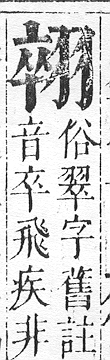 俗翠字舊註
音卒飛疾非